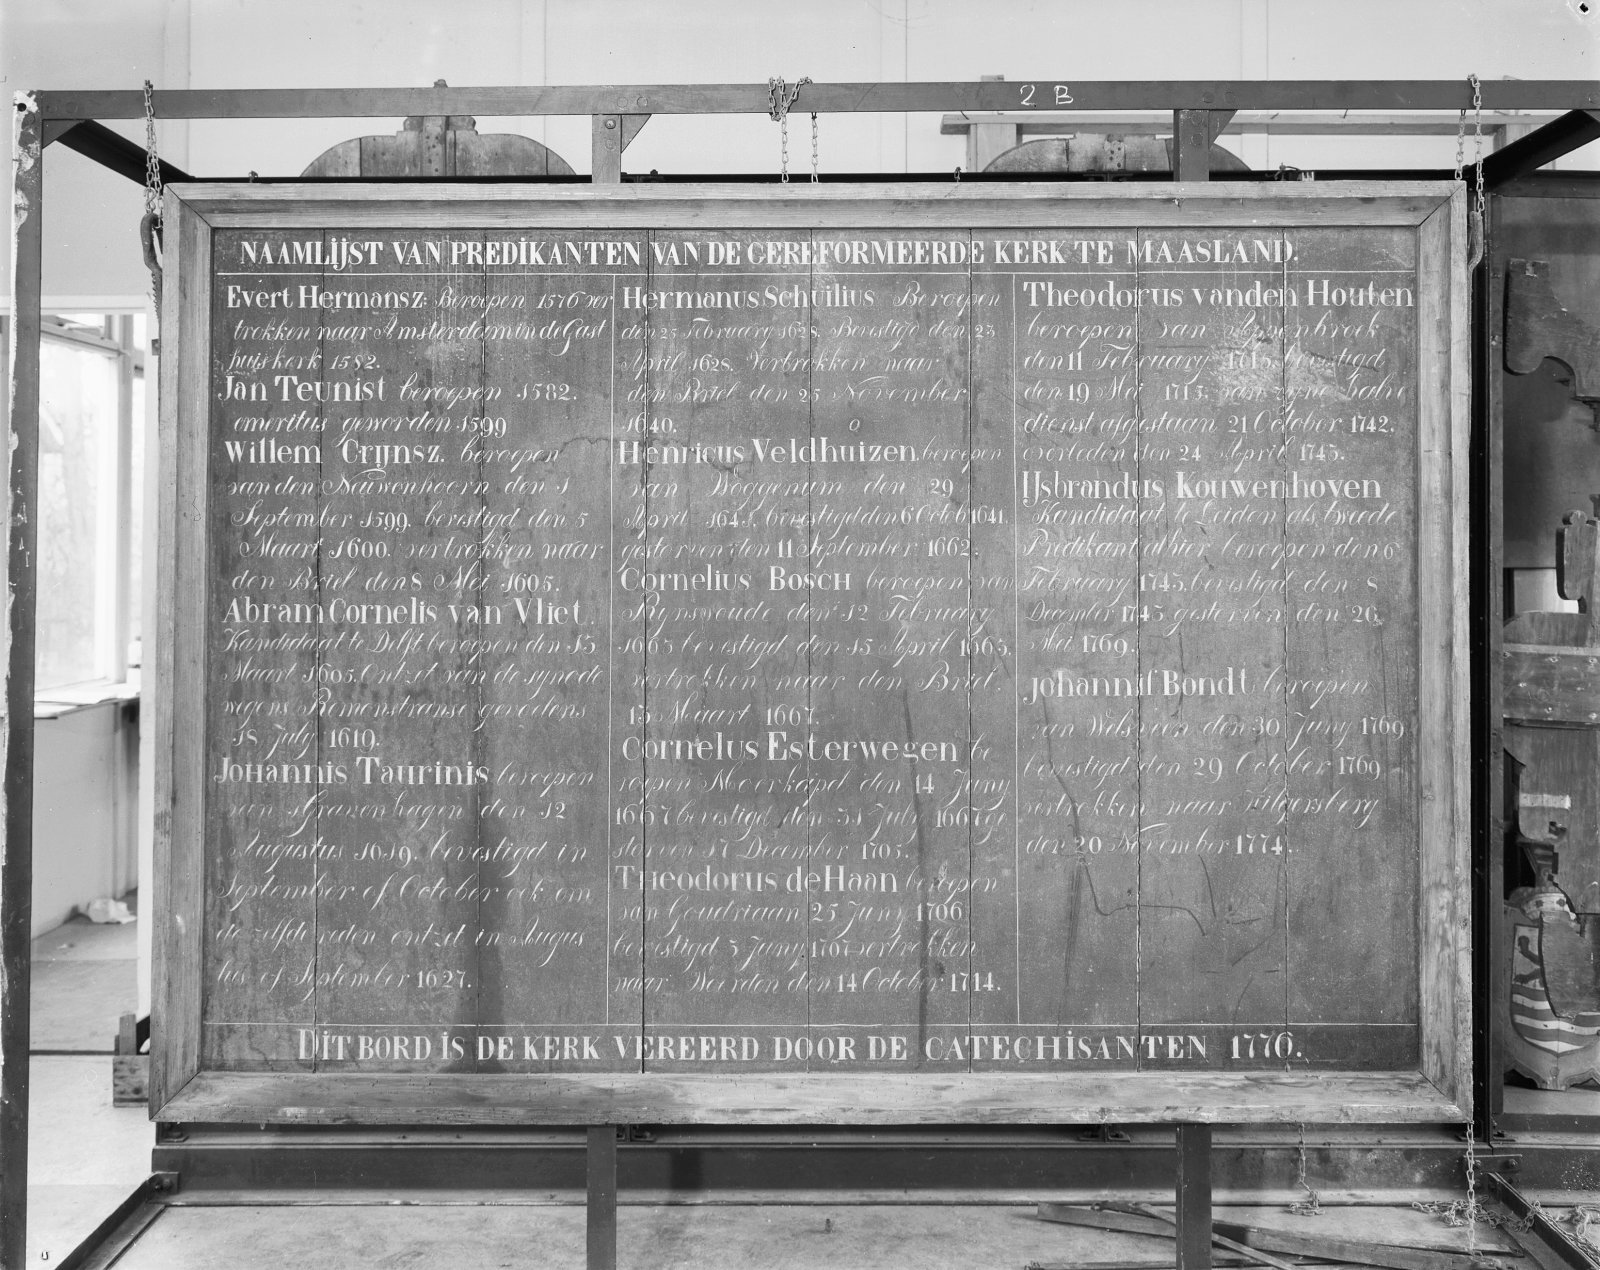 2 B
NAAMLIJST VAN PREDIKANTEN VAN DE GEREFORMEERDE KERK TE MAASLAND.
Evert Hermansz: Beroepen 1576 ver
trokken naar Amsterdam in de Gast
huis kerk 1582.
Jan Teunist beroepen 1582.
emeritus geworden 1599
Willem Crijnsz. beroepen
van den Nauwenhoorn den 1
September 1599. bevestigd den 5
Maart 1600. vertrokken naar
den Briel den 8 Mei 1605.
Abram Cornelis van Vliet.
Kandidaat te Delft beroepen den 15
Maart 1605. Ontzet van de synode
wegens Remonstranse gevoelens
18 July 1619.
Johannis Taurinis beroepen
van sGravenhagen den 12
Augustus 1619. bevestigd in
September of October ook om
de zelfde reden ontzet in Augus
tus of September 1627.
Hermanus Schuilius Beroepen
den 25 February 1628. Bevestigd den 23
April 1628. Vertrokken naar
den Briel den 25 November
1640.
Henricus Veldhuizen beroepen
van Woggenum den 29
April 1641. bevestigd den 6 Octob 1641.
gestorven den 11 September 1662.
Cornelius Bosch beroepen van
Rynswoude den 12 February
1663 bevestigd den 15 April 1663.
vertrokken naar den Briel.
13 Maart 1667.
Cornelus Esterwegen be
roepen Moerkapel den 14 Juny
1667 bevestigd den 31 July 1667 ge
storven 17 December 1705.
Theodorus de Haan beroepen
van Goudriaan 25 Juny 1706
bevestigd 3 Juny 1707 vertrokken
naar Woerden den 14 October 1714.
Theodorus vanden Houten
beroepen van
den 11 February 1715. bevestigd
den 19 Mei 1715. van zyne halve
dienst afgestaan 21 October 1742.
overleden den 24 April 1745.
IJsbrandus Kouwenhoven
Kandidaat te Leiden als tweede
Predikant alhier beroepen den 6
February 1743. bevestigd den 8
December 1743 gestorven den 26
Mei 1769.
Johannis Bondt beroepen
van Welsrein den 30 Juny 1769
bevestigd den 29 October 1769
vertrokken naar Hilgersberg
den 20 November 1774.
DIT BORD IS DE KERK VEREERD DOOR DE CATECHISANTEN 1776.